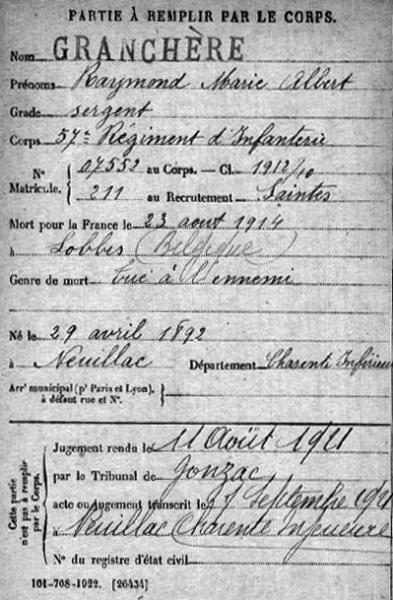 PARTIE À REMPLIR PAR LE CORPS.
Nom GRANCHÈRE
Prénoms Raymond Marie Albert
Grade sergent
Corps 57e Régiment d'Infanterie
N° Matricule. { 07552 au Corps. — Cl. 1912/10
211 au Recrutement Saintes
Mort pour la France le 23 aout 1914
à Lobbes (Belgique)
Genre de mort tué à l'ennemi
Né le 29 avril 1892
à Neuillac Département Charente Inférieure
Arrt municipal (pr Paris et Lyon), à défaut rue et N°. }
Cette partie n'est pas à remplir par le Corps.
Jugement rendu le 11 Août 1921
par le Tribunal de Gonzac
acte ou jugement transcrit le 7 Septembre 1921
à Neuillac Charente Inferieure
N° du registre d'état civil
101-708-1922. [26434]